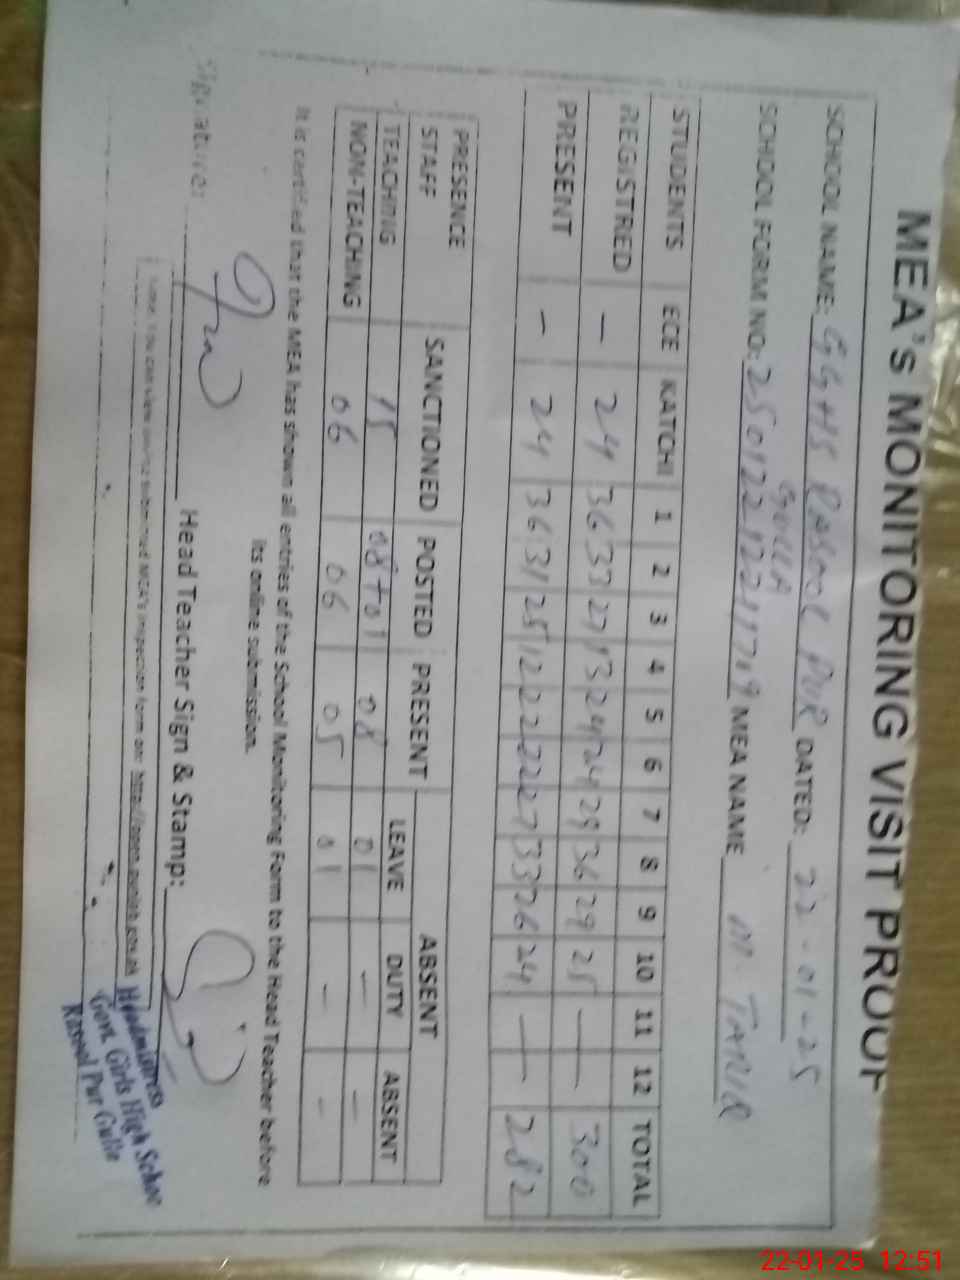 MEA's MONITORING VISIT PROOF
SCHOOL NAME: GGHS RASOOL PUR DATED: 22-01-25
GULLA
SCHOOL FORM NO: MEA NAME M. TAHIR
STUDENTS ECE KATCHI 1 2 3 4 5 6 7 8 9 10 11 12 TOTAL
REGISTRED — 24 36 33 27 13 24 24 29 36 29 25 — — 300
PRESENT — 24 36 31 25 12 22 22 27 33 26 24 — — 282
PRESENCE SANCTIONED POSTED PRESENT ABSENT
STAFF LEAVE DUTY ABSENT
TEACHING 15 08+01 08 01 — —
NON-TEACHING 06 06 05 01 — —
It is certified that the MEA has shown all entries of the School Monitoring Form to the Head Teacher before
its online submission.
Signature: Head Teacher Sign & Stamp:
Note: You can view online submitted MEA's inspection form on: http://open.punjab.gov.pk
Headmistress
Govt. Girls High School
Rasool Pur Gulla
22-01-25 12:51